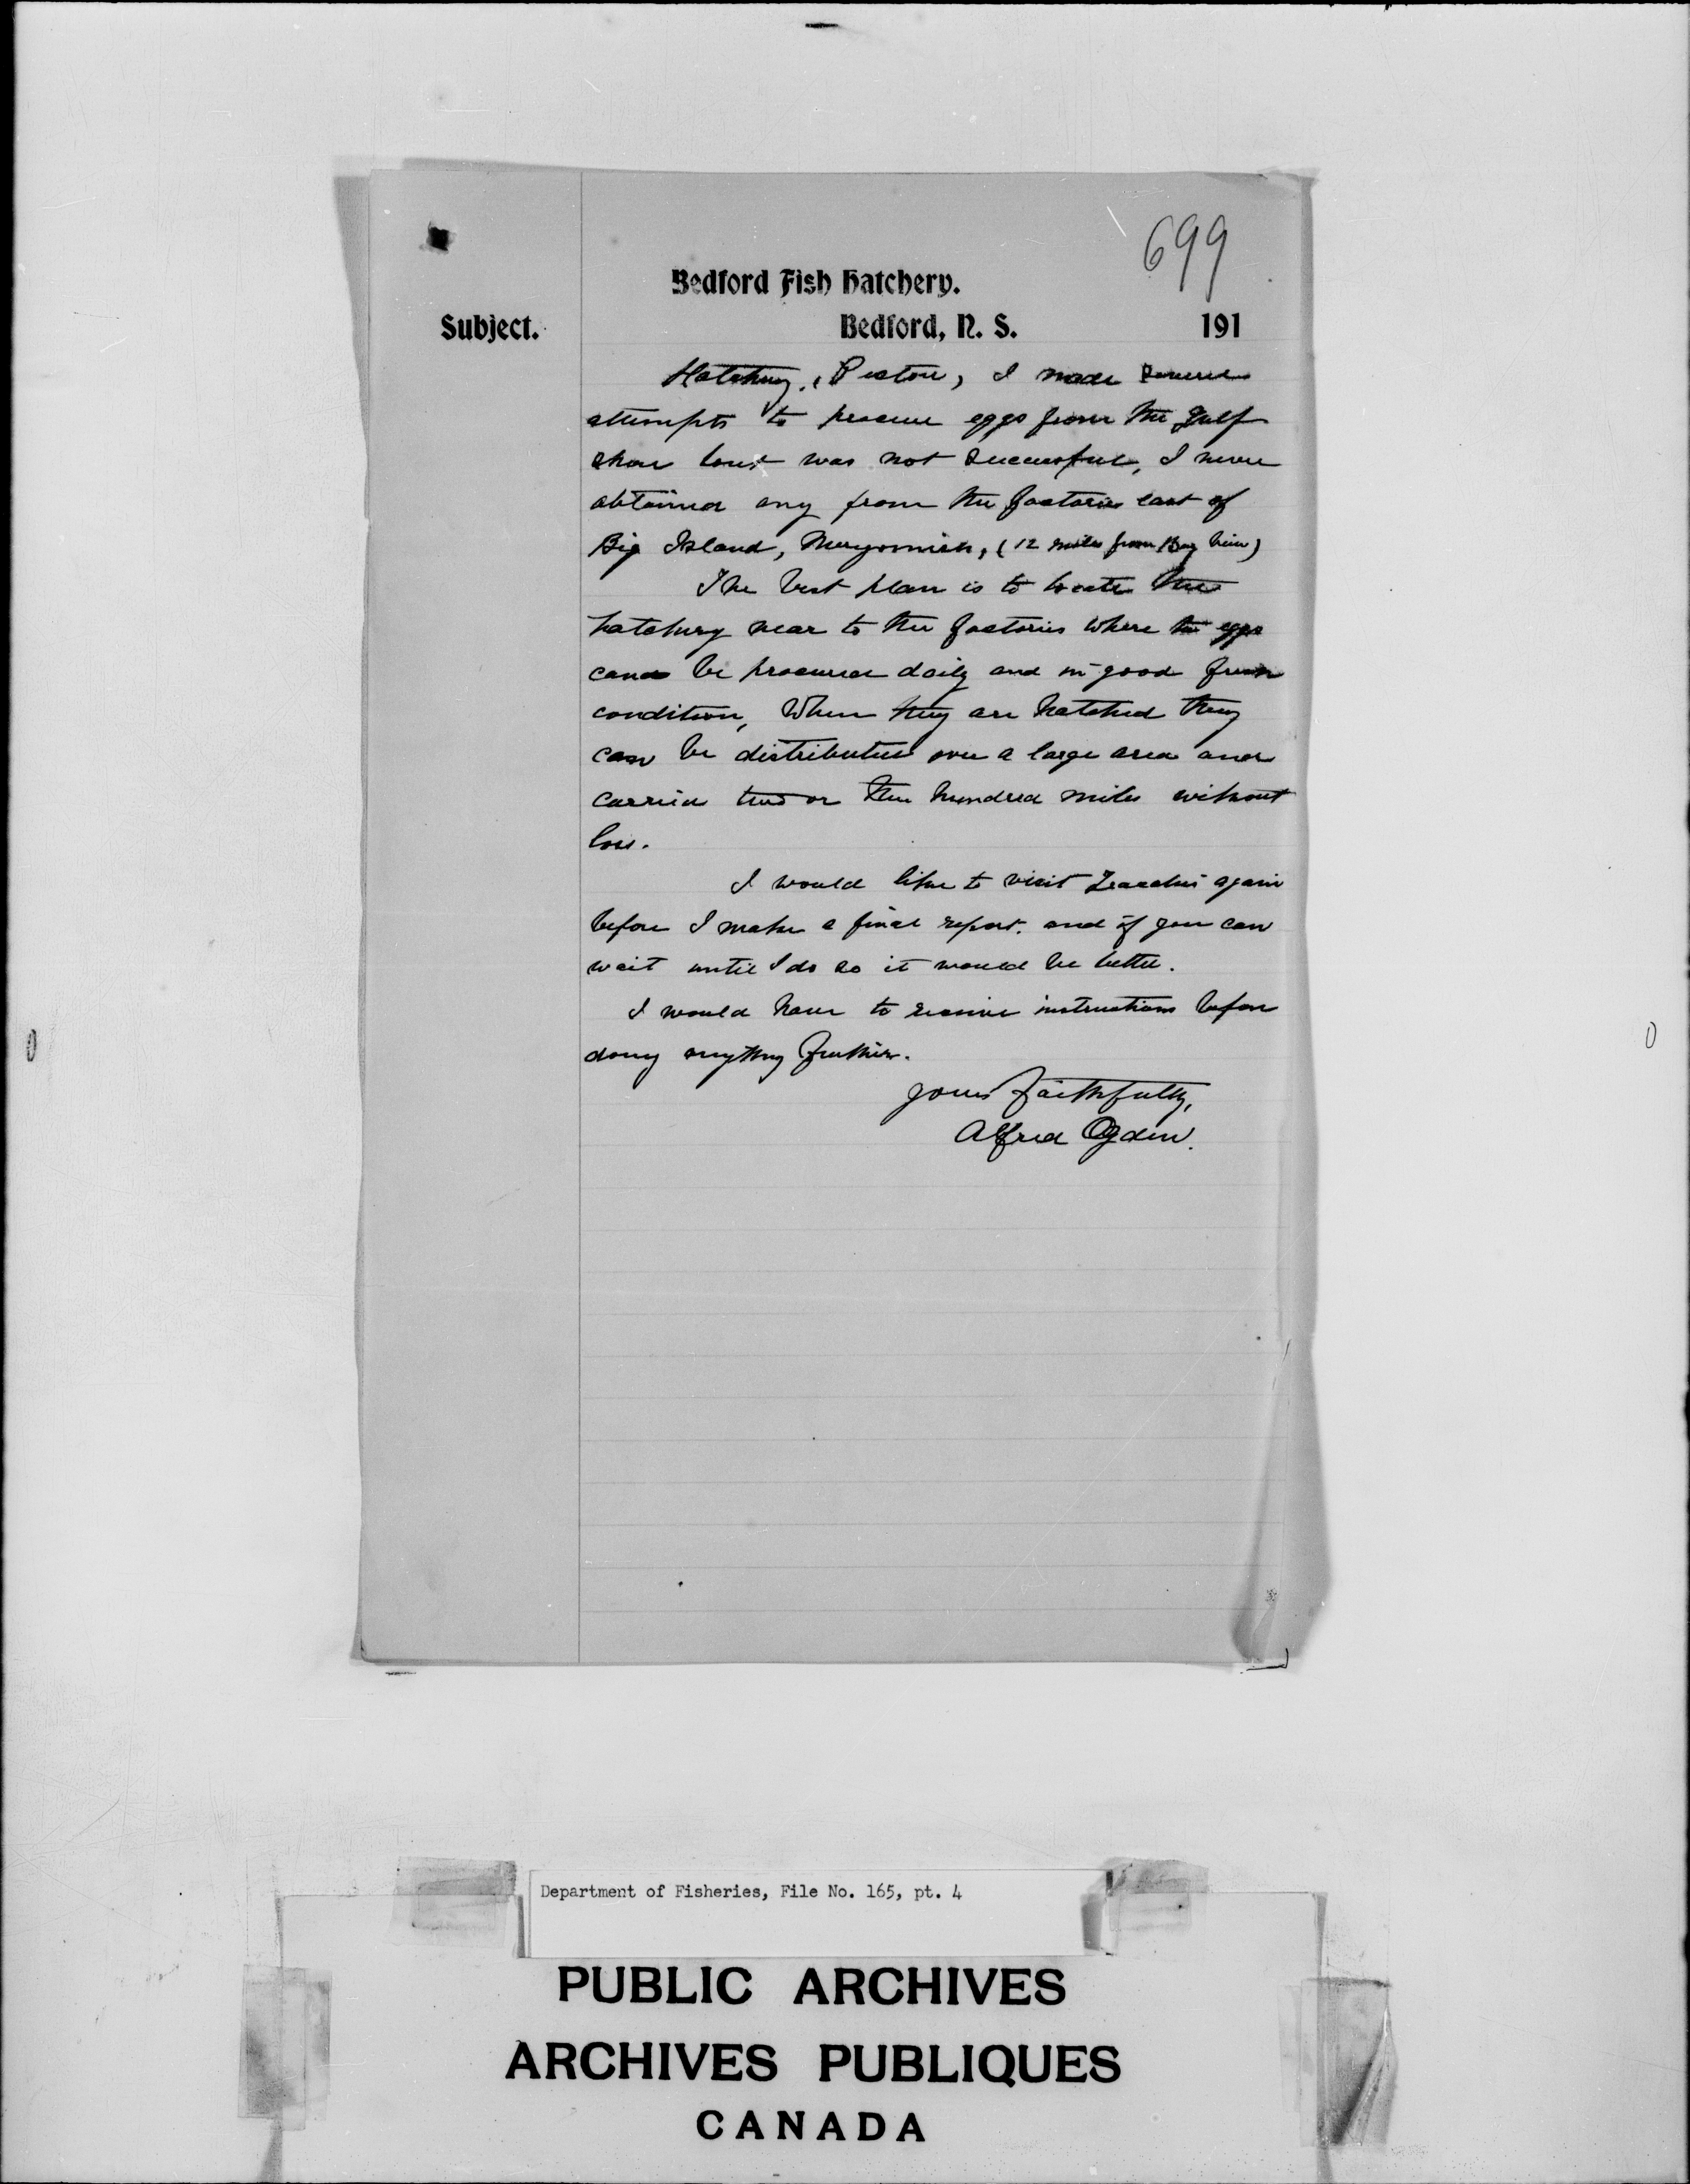 699
Bedford Fish Hatchery.
Subject.
Bedford, N. S. 191
Hatchery, Pictou, I made several
attempts to procure eggs from the Gulf
shore but was not successful, I never
obtained any from the factories east of
Big Island, Merigomish, (12 miles from Bay View)
The best plan is to locate the
hatchery near to the factories where the eggs
can be procured daily and in good fresh
condition, When they are hatched they
can be distributed over a large area and
carried two or three hundred miles without
loss.
I would like to visit again
before I make a final report. and if you can
wait until I do so it would be better.
I would have to receive instructions before
doing anything further.
Yours faithfully,
Alfred Ogden.
Department of Fisheries, File No. 165, pt. 4
PUBLIC ARCHIVES
ARCHIVES PUBLIQUES
CANADA